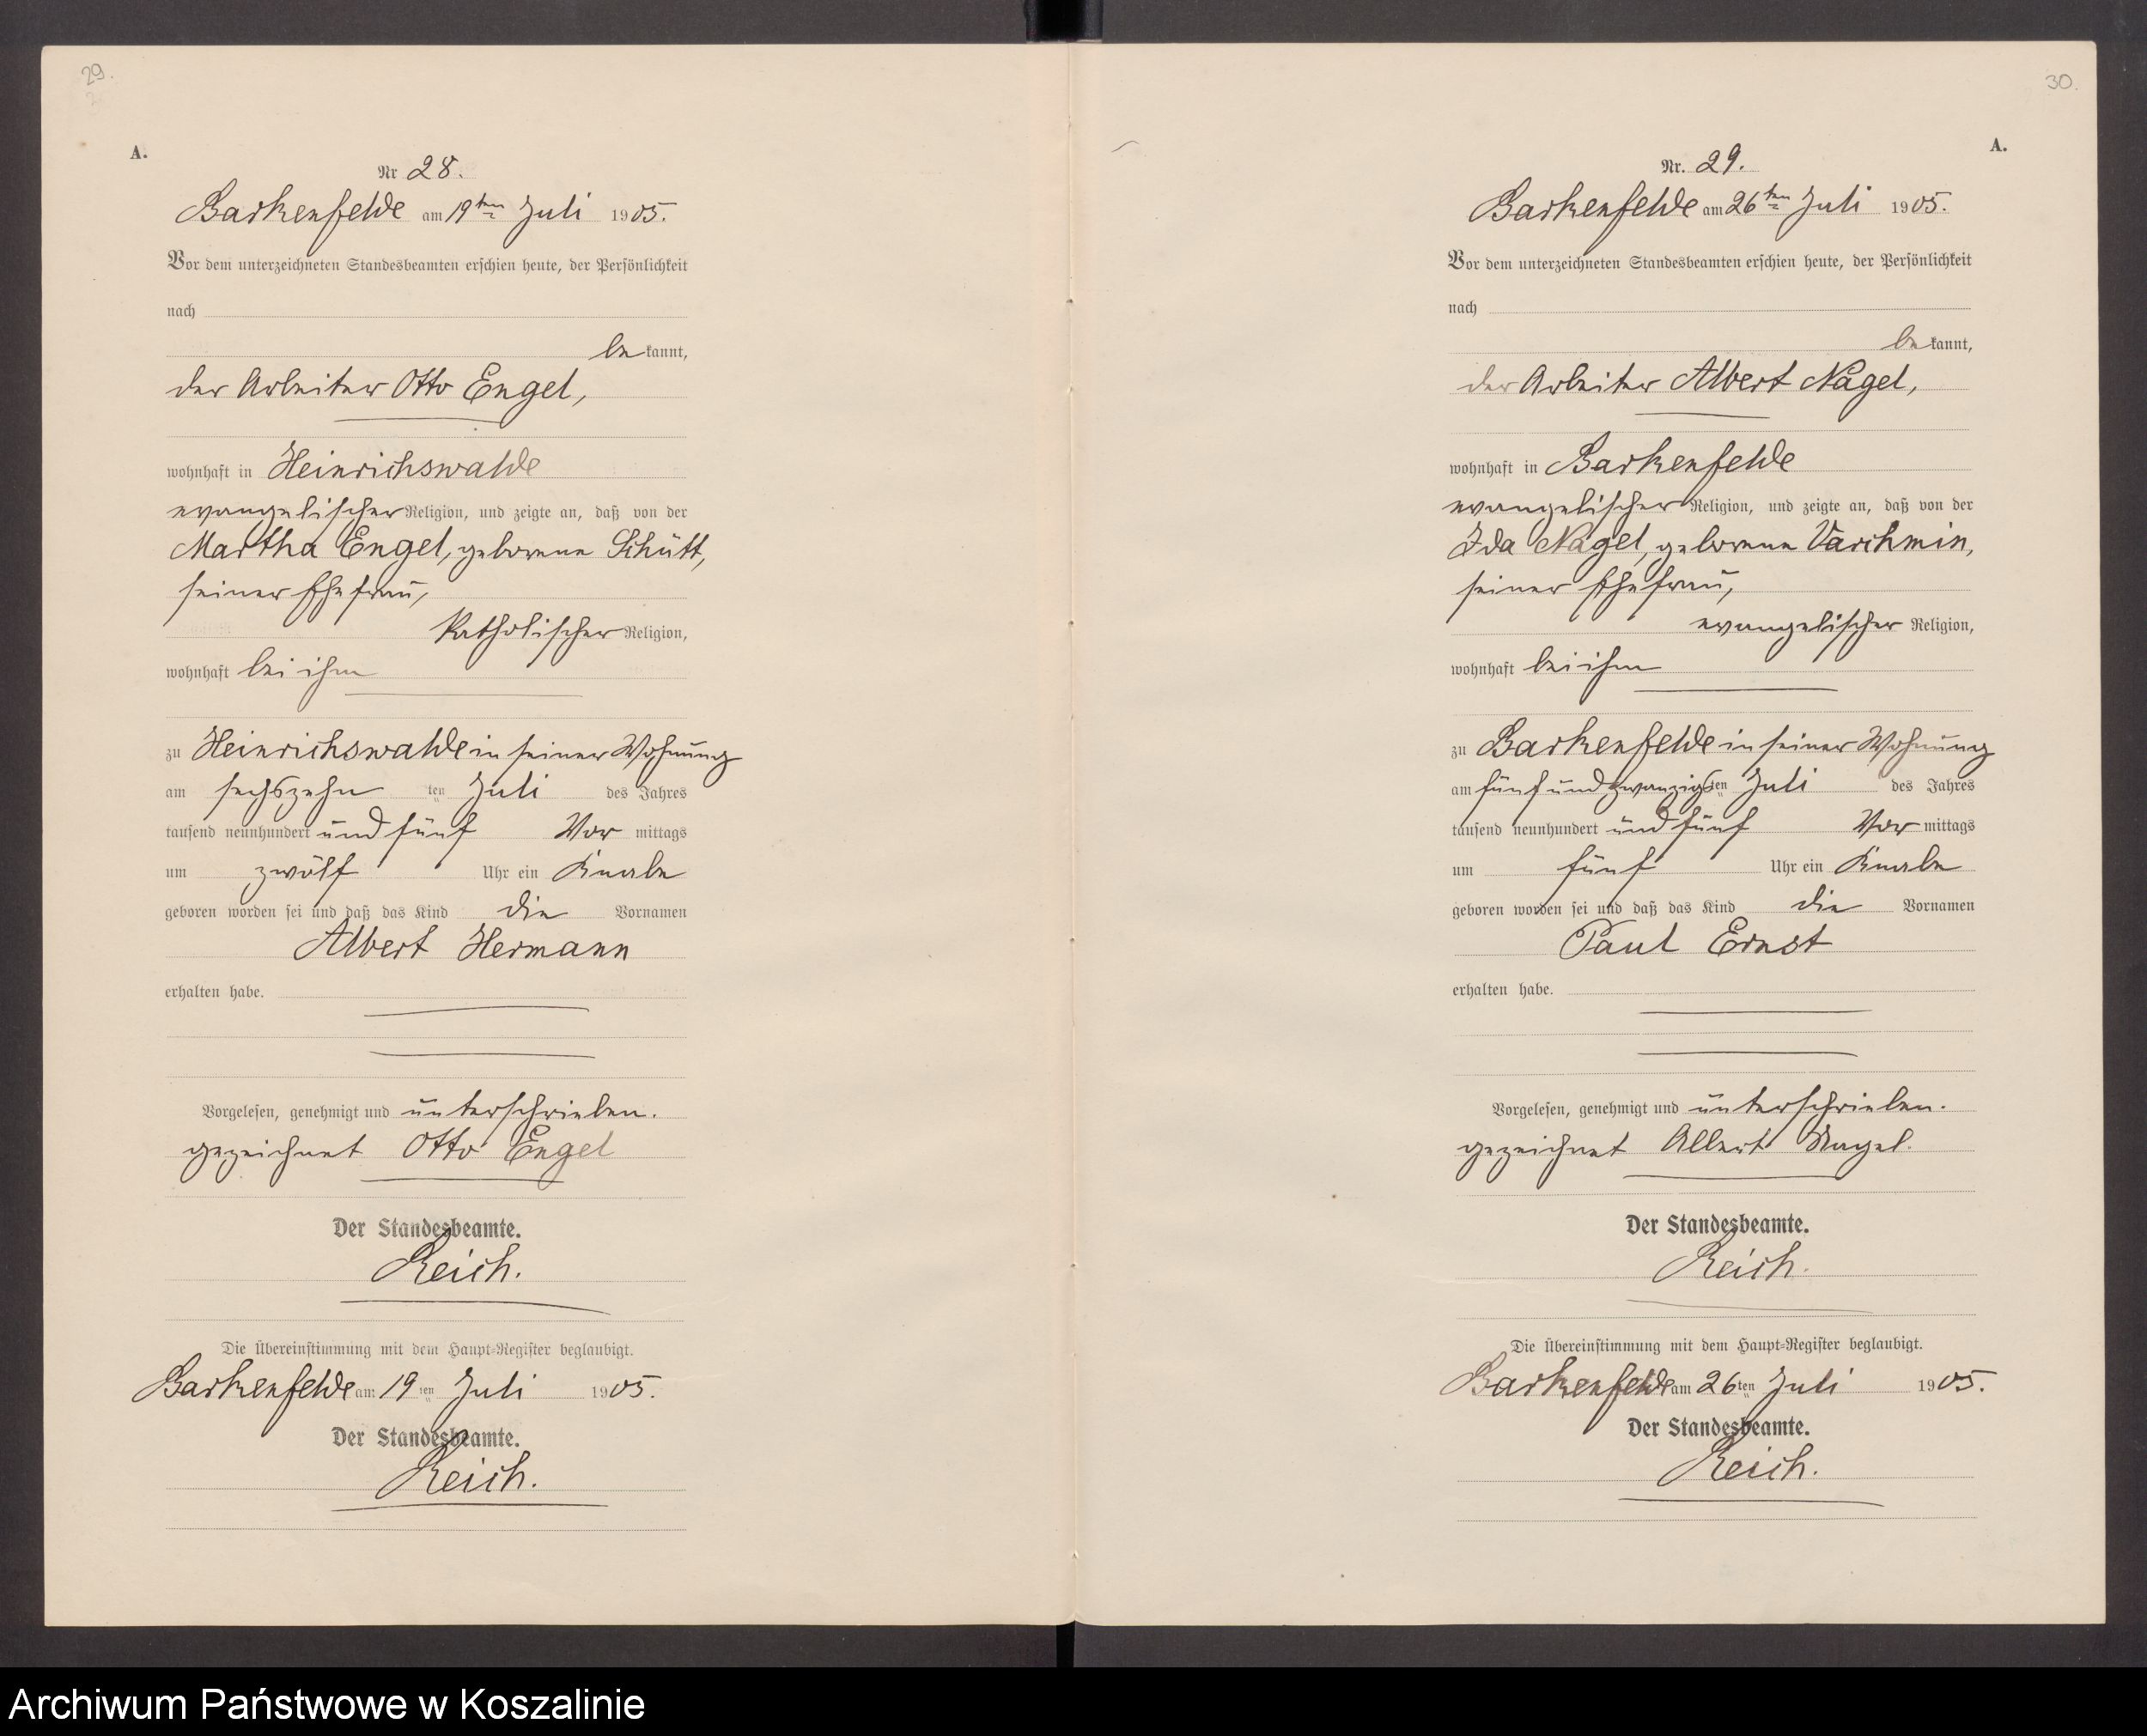 29.
A.
Nr 28.
Barkenfelde am 19ten Juli 1905.
Vor dem unterzeichneten Standesbeamten erschien heute, der Persönlichkeit
nach
bekannt,
der Arbeiter Otto Engel,
wohnhaft in Heinrichswalde
evangelischer Religion, und zeigte an, daß von der
Martha Engel, geborene Schütt,
seiner Ehefrau,
katholischer Religion,
wohnhaft bei ihm
zu Heinrichswalde in seiner Wohnung
am sechszehn ten Juli des Jahres
tausend neunhundert und fünf Vor mittags
um zwölf Uhr ein Knabe
geboren worden sei und daß das Kind die Vornamen
Albert Hermann
erhalten habe.
Vorgelesen, genehmigt und unterschrieben.
gezeichnet Otto Engel
Der Standesbeamte.
Reich.
Die Übereinstimmung mit dem Haupt-Register beglaubigt.
Barkenfelde am 19ten Juli 1905.
Der Standesbeamte.
Reich.
30.
A.
Nr. 29.
Barkenfelde am 26ten Juli 1905.
Vor dem unterzeichneten Standesbeamten erschien heute, der Persönlichkeit
nach
bekannt,
der Arbeiter Albert Nagel,
wohnhaft in Barkenfelde
evangelischer Religion, und zeigte an, daß von der
Ida Nagel, geborene Varchmin,
seiner Ehefrau,
evangelischer Religion,
wohnhaft bei ihm
zu Barkenfelde in seiner Wohnung
am fünfundzwanzigsten Juli des Jahres
tausend neunhundert und fünf Vor mittags
um fünf Uhr ein Knabe
geboren worden sei und daß das Kind die Vornamen
Paul Ernst
erhalten habe.
Vorgelesen, genehmigt und unterschrieben.
gezeichnet Albert Nagel.
Der Standesbeamte.
Reich.
Die Übereinstimmung mit dem Haupt-Register beglaubigt.
Barkenfelde am 26ten Juli 1905.
Der Standesbeamte.
Reich.
Archiwum Państwowe w Koszalinie